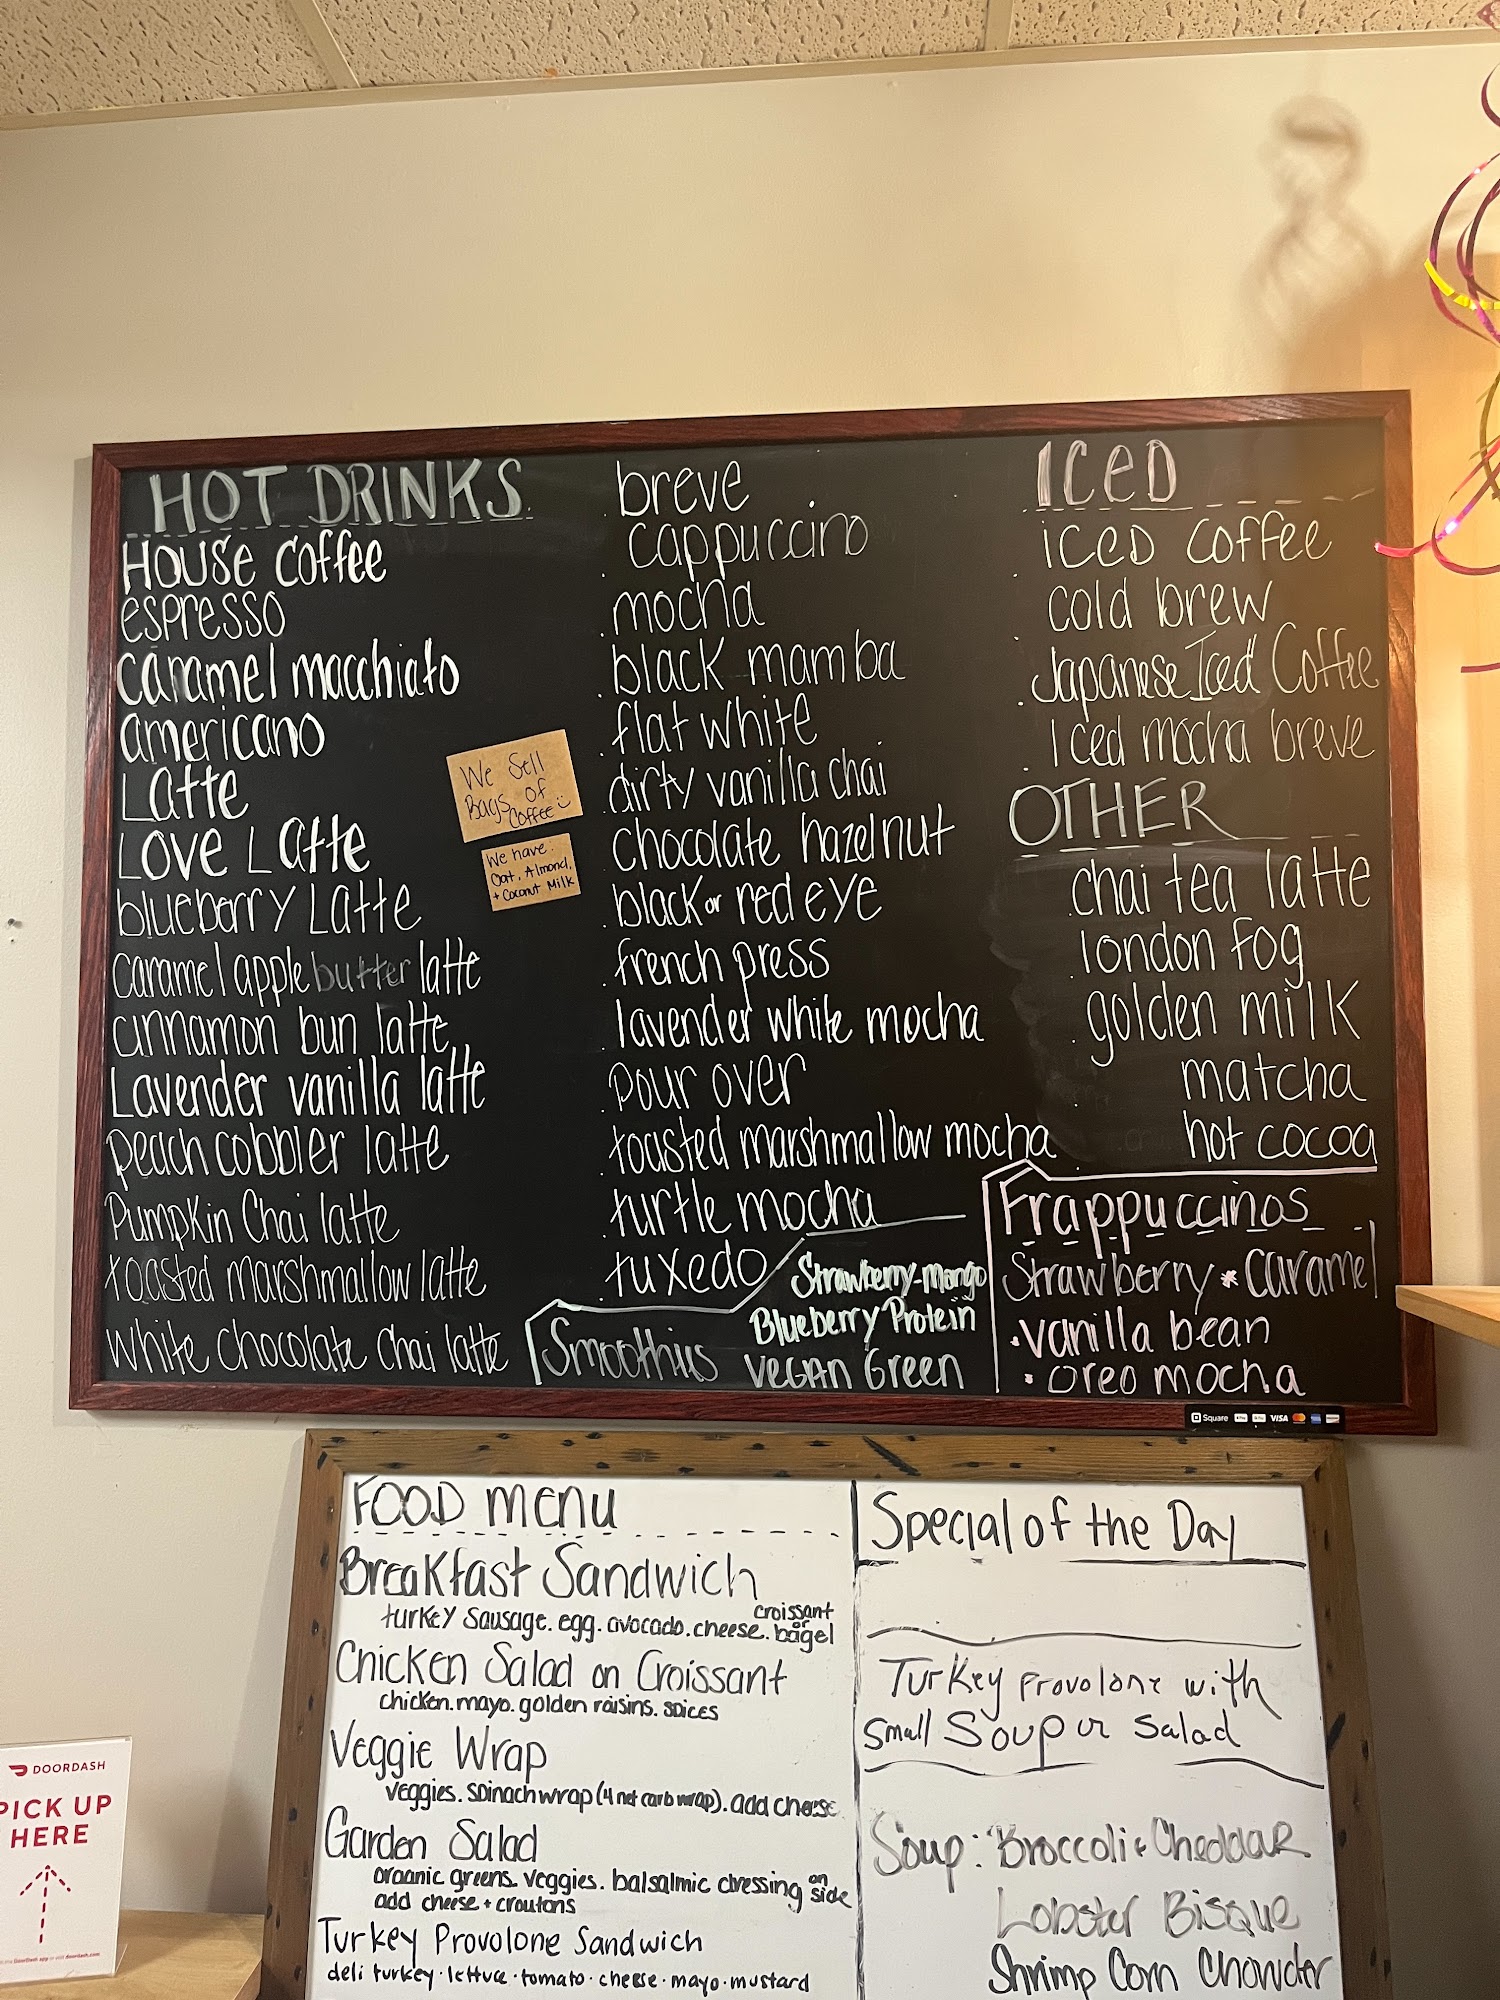 HOT DRINKS
House Coffee
espresso
caramel macchiato
americano
Latte
Love Latte
blueberry Latte
caramel apple butter latte
cinnamon bun latte
Lavender vanilla latte
peach cobbler latte
Pumpkin Chai latte
toasted marshmallow latte
white chocolate chai latte
We Sell
Bags of
Coffee
We have
Oat, Almond,
+ Coconut Milk
breve
cappuccino
mocha
black mamba
flat white
dirty vanilla chai
chocolate hazelnut
black or red eye
french press
lavender white mocha
pour over
toasted marshmallow mocha
turtle mocha
tuxedo
Smoothies
Strawberry-mango
Blueberry Protein
Vegan Green
ICED
iced coffee
cold brew
Japanese Iced Coffee
Iced mocha breve
OTHER
chai tea latte
london fog
golden milk
matcha
hot cocoa
Frappuccinos
Strawberry * caramel
vanilla bean
oreo mocha
Square
VISA
FOOD MENU
Breakfast Sandwich
turkey sausage. egg. avocado. cheese. croissant or bagel
Chicken Salad on Croissant
chicken. mayo. golden raisins. spices
Veggie Wrap
veggies. spinach wrap (4 net carb wrap). add cheese
Garden Salad
organic greens. veggies. balsalmic dressing on side
add cheese + croutons
Turkey Provolone Sandwich
deli turkey · lettuce · tomato · cheese · mayo · mustard
Special of the Day
Turkey provolone with
small Soup or salad
Soup: Broccoli & Cheddar
Lobster Bisque
Shrimp Corn Chowder
DOORDASH
PICK UP
HERE